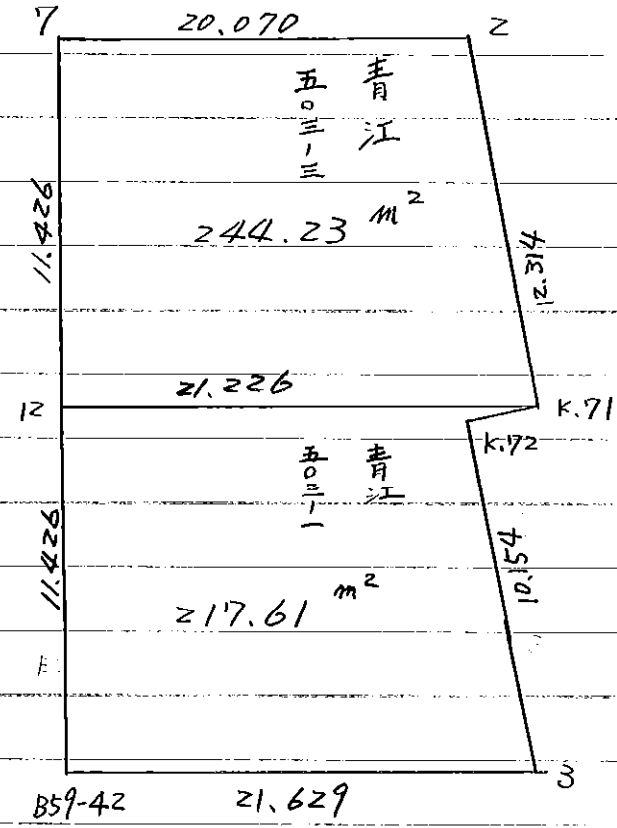 7 20.070 2
青江
五〇三ノ三
11.426
244.23 m²
12.314
12 21.226 K.71
K.72
青江
五〇三ノ一
11.426
217.61 m²
10.154
B59-42 21.629 3